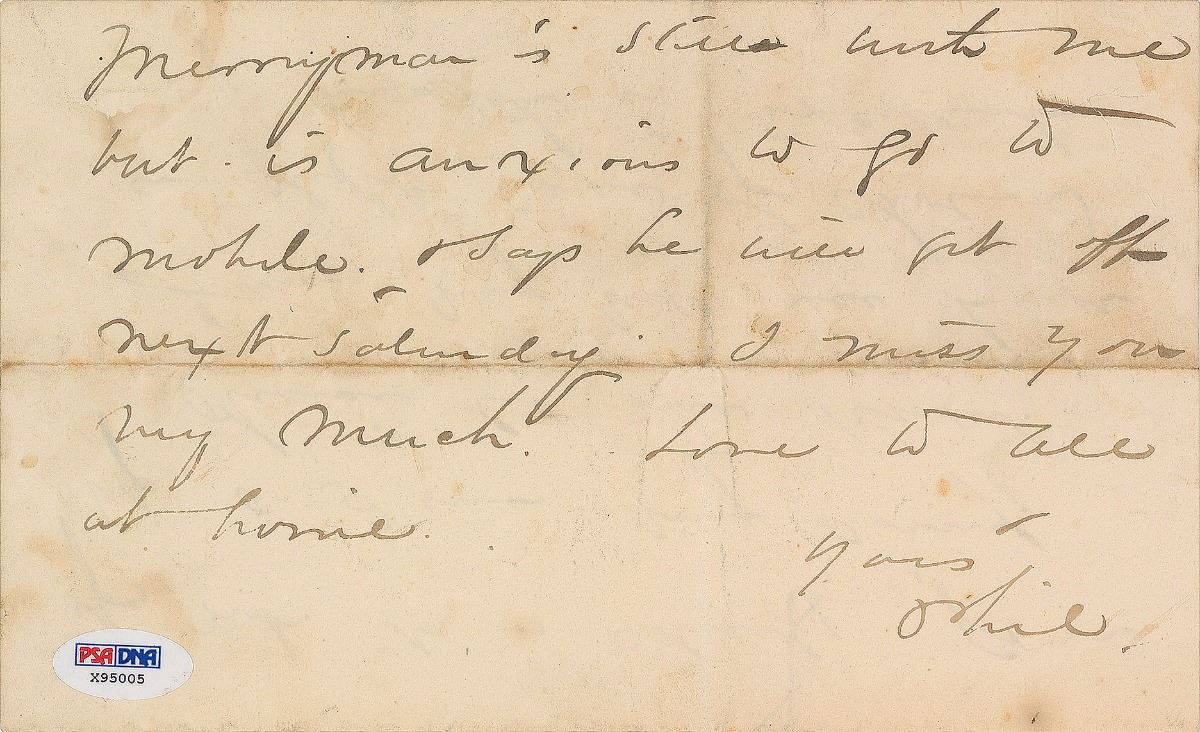 Merryman is still with me
but is anxious to go to
Mobile. & says he will get off
next Saturday. I miss you
very much. Love to all
at home.
Yours
Phil.
PSA DNA
X95005